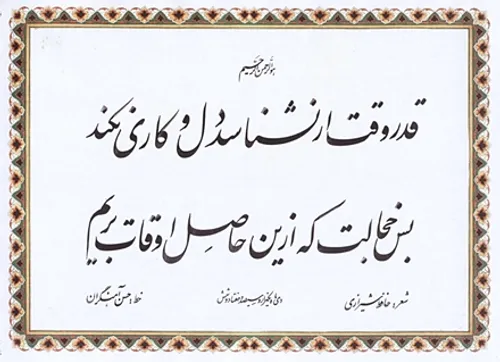 هوالرحمن الرحیم
قدر وقت ار نشناسد دل و کاری نکند
بس خجالت که ازین حاصل اوقات بریم
شعر: حافظ شیرازی یکهزار و سیصد و هفتاد و شش خط: حسن آهنگران